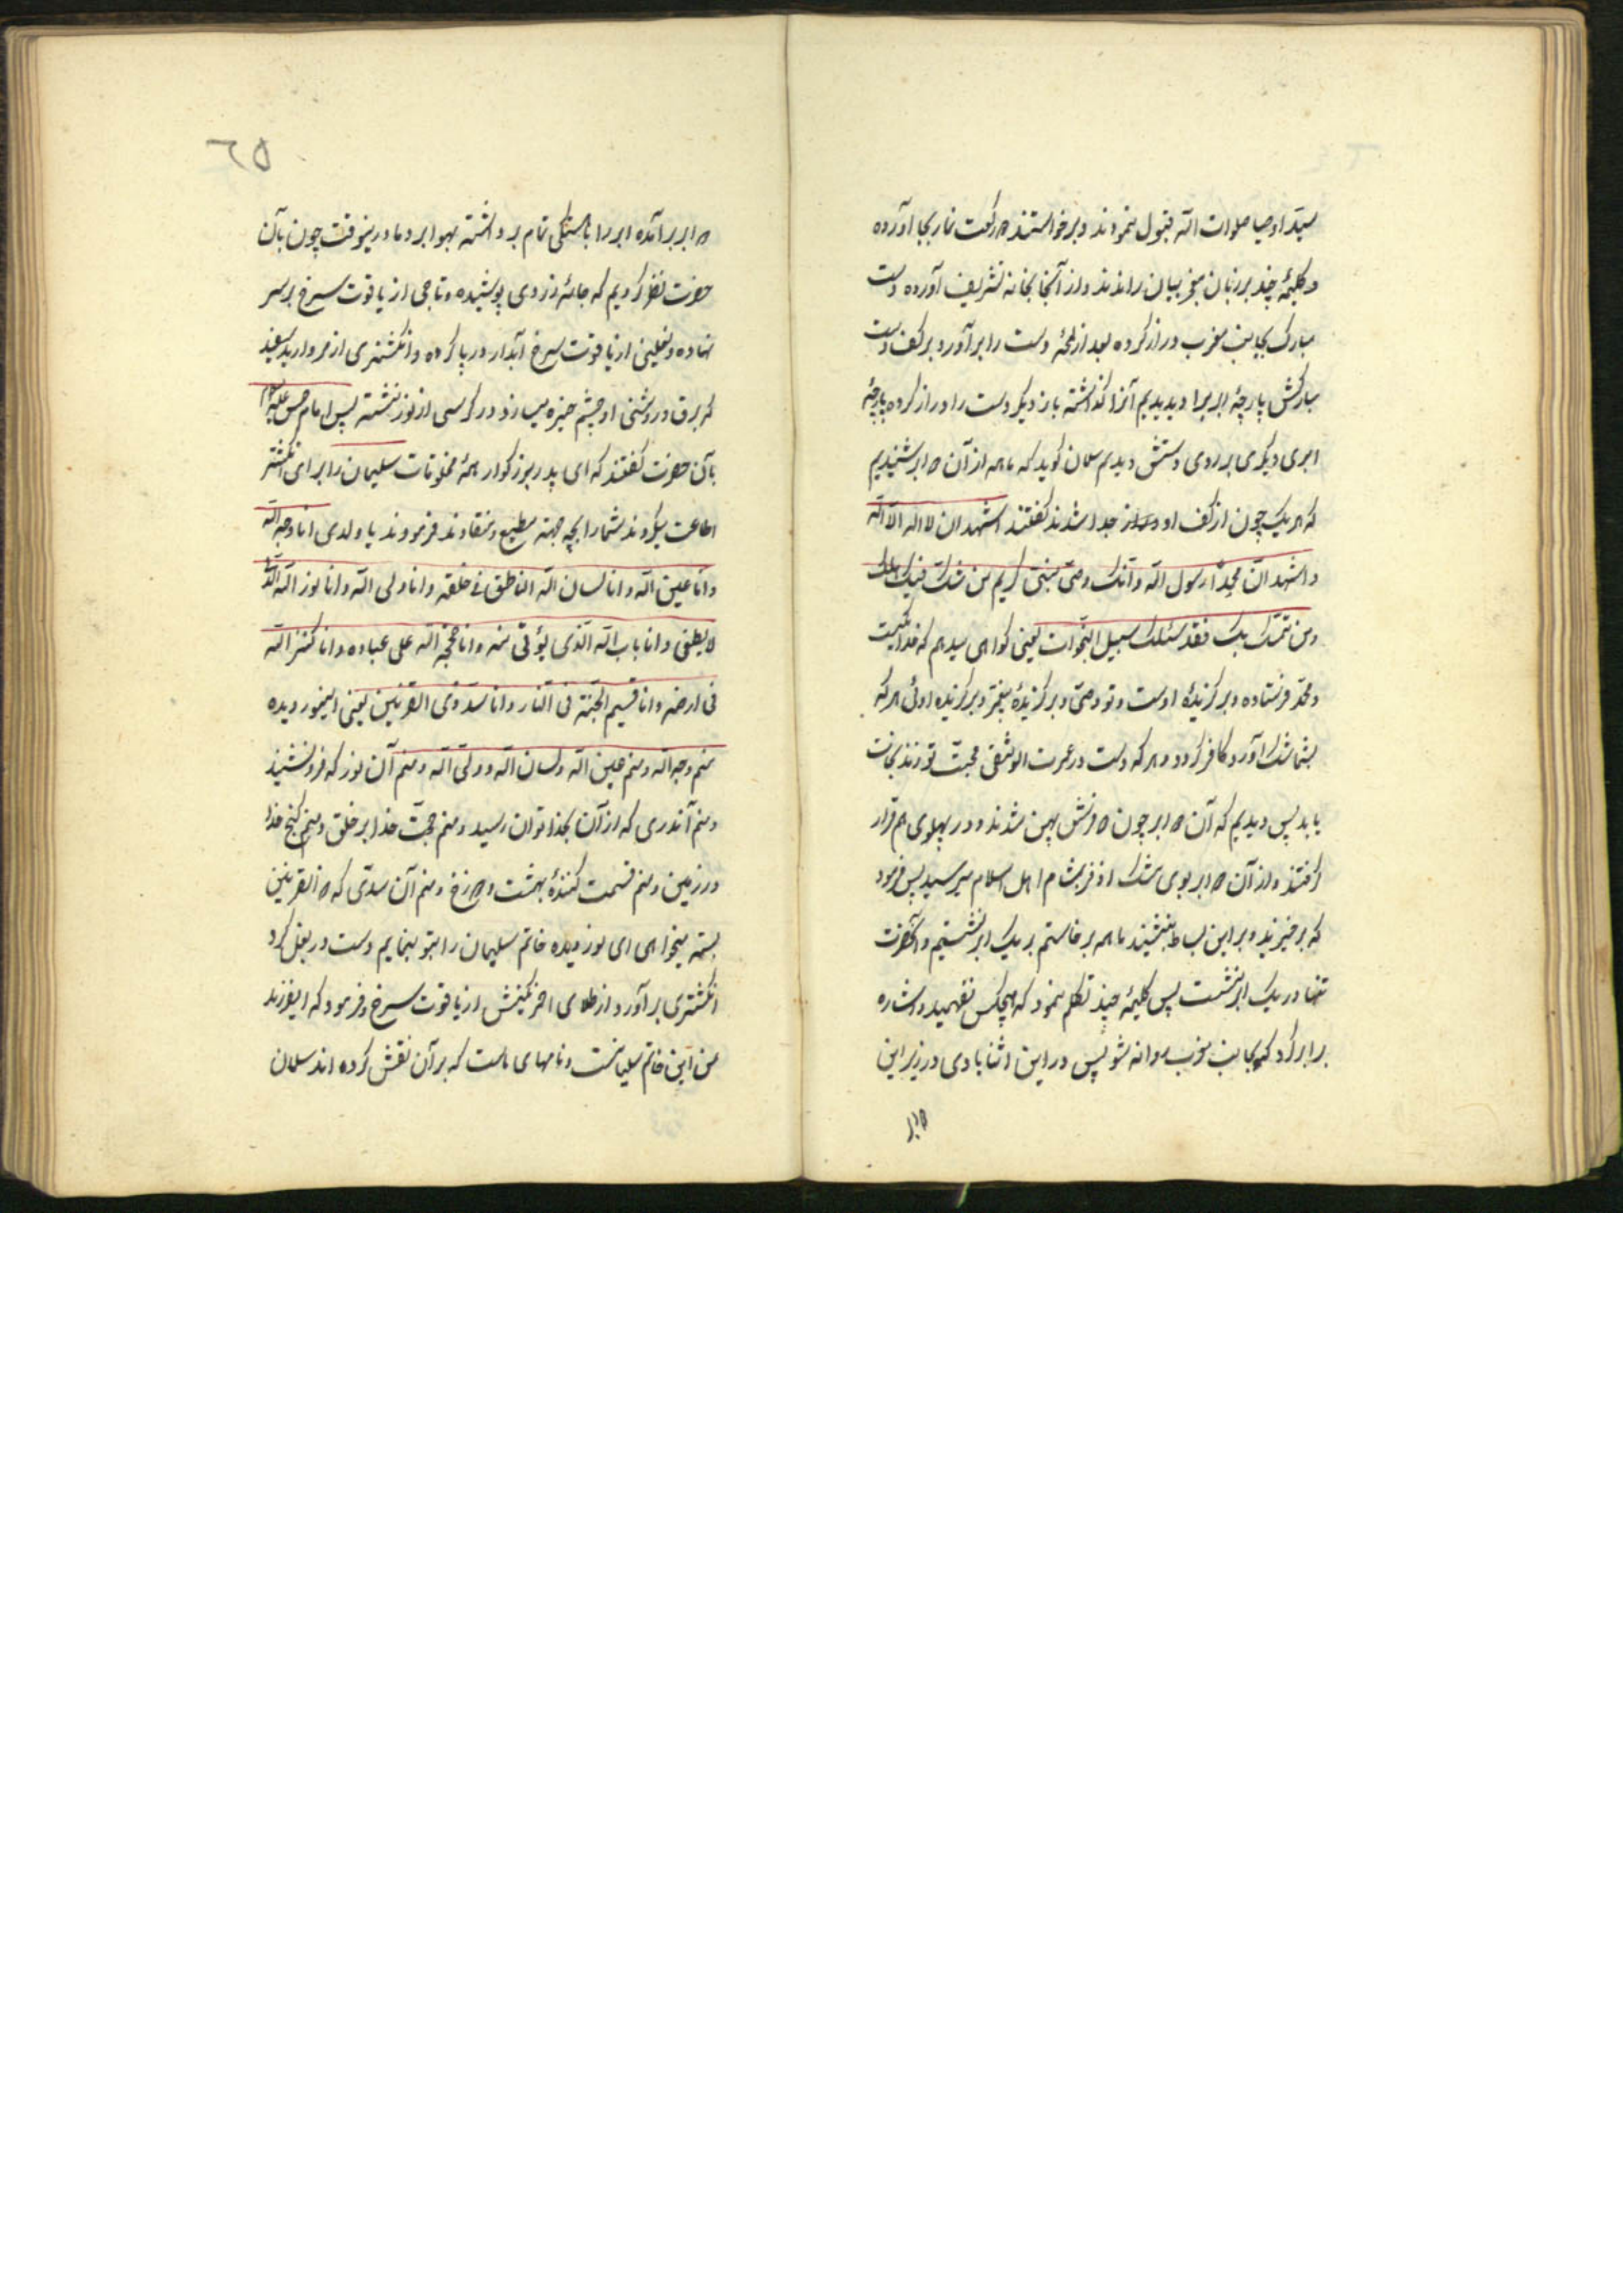 سید اوصیا صلوات الله قبول نمودند و برخواستند دو رکعت نماز بجا آورده
و کلیمهٔ چند بر زبان معجز بیان راندند و از آنجا بخانه تشریف آورده دست
مبارک بجانب مغرب دراز کرده بعد از لمحهٔ دست را برآورد بر کف دست
مبارکش پارچهٔ ابر برا دیدیم آنرا گذاشته باز دیگر دست را دراز کرده پارچهٔ
ابری دیگری بر روی دستش دیدیم سلمان گوید که ما همه از آن دو ابر شنیدیم
که هر یک چون از کف او جدا شدند گفتند اشهد ان لا اله الا الله
و اشهد انّ محمّداً رسول الله و انّک وصیّ نبیّ کریم من شکّ فیک هلک
و من تمسّک بک فقد سلک سبیل النجوات یعنی گواهی میدهم که خدا یکیست
و محمّد فرستاده و برگزیدهٔ اوست و تو وصیّ و برگزیدهٔ پیغمبر و برگزیده اوئی هر که
بشما شک آورد کافر گردد و هر که دست در عروت الوثقی محبّت تو زند نجات
یابد پس دیدیم که آن دو ابر چون دو فرش پهن شدند و در پهلوی هم قرار
گرفتند و از آن دو ابر بوی مشک اذفر بمشام اهل اسلام میرسید پس فرمود
که برخیزید و بر این بساط بنشینید ما همه برخاستیم بر یک ابر نشستیم و آنحضرت
تنها در یک ابر نشست پس کلیمهٔ چند تکلم نمود که هیچکس نفهمید و اشاره
برابر کرد که بجانب مغرب روانه شو پس در این اثنا بادی در زیر این
دو ابر
٢٥
دو ابر برآمده ابر را بآهستگی تمام برداشته بهوا برد ما در ینوقت چون بآن
حضرت نظر کردیم که جامهٔ زردی پوشیده و تاجی از یاقوت سرخ بر سر
نهاده و نعلینی از یاقوت سرخ آبدار در پا کرده و انگشتری از مروارید سفید
که برق در روشنی او چشم خیره میسازد در کرسی از نور نشسته پس امام حسن علیه السلام
بآن حضرت گفتند که ای پدر بزرگوار همهٔ مخلوقات سلیمان را برای انگشتر
اطاعت میکردند شما را بچه جهة مطیع و منقادند فرمودند یا ولدی انا وجه الله
و انا عین الله و انا لسان الله الناطق فی خلقه و انا ولی الله و انا نور الله الّذی
لا یطفی و انا باب الله الّذی یؤتی منه و انا حجّة الله علی عباده و انا کنز الله
فی ارضه و انا قسیم الجنّة فی النار و انا سدّ ذی القرنین یعنی اینور دیده
منم وجه الله و منم عین الله و لسان الله و ولیّ الله و منم آن نور که فرو ننشیند
و منم آندری که از آن بخدا توان رسید و منم حجّت خدا بر خلق و منم گنج خدا
در زمین و منم قسمت کنندهٔ بهشت و دوزخ و منم آن سدّی که ذو القرنین
بسته میخواهی ای نور دیده خاتم سلیمان را بتو بنمایم دست در بغل کرد
انگشتری برآورد از طلای احمر نگینش از یاقوت سرخ و فرمود که ایفرزند
من این خاتم سلیمانست و نامهای ماست که بر آن نقش کرده اند سلمان